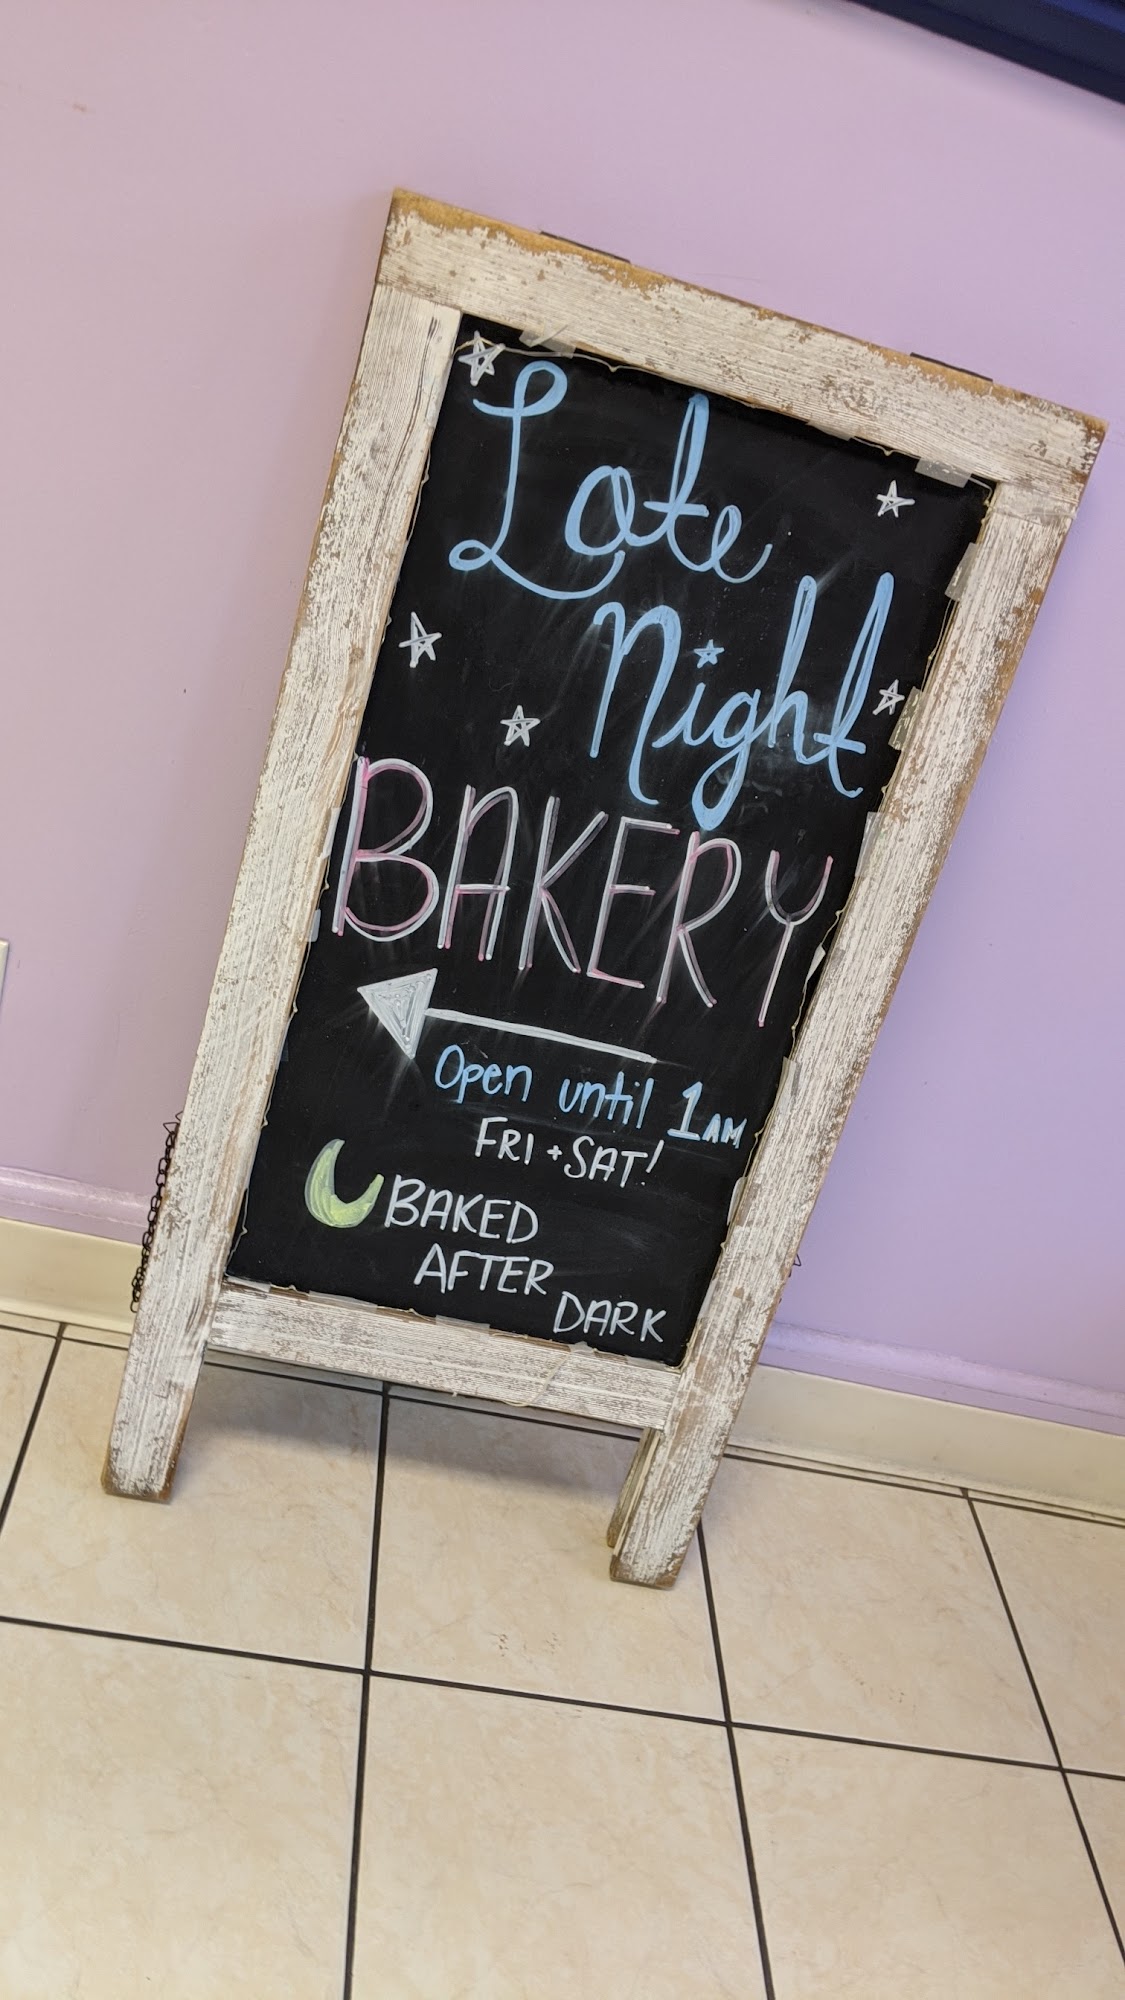 Late
Night
BAKERY
Open until 1AM
FRI + SAT!
BAKED
AFTER
DARK